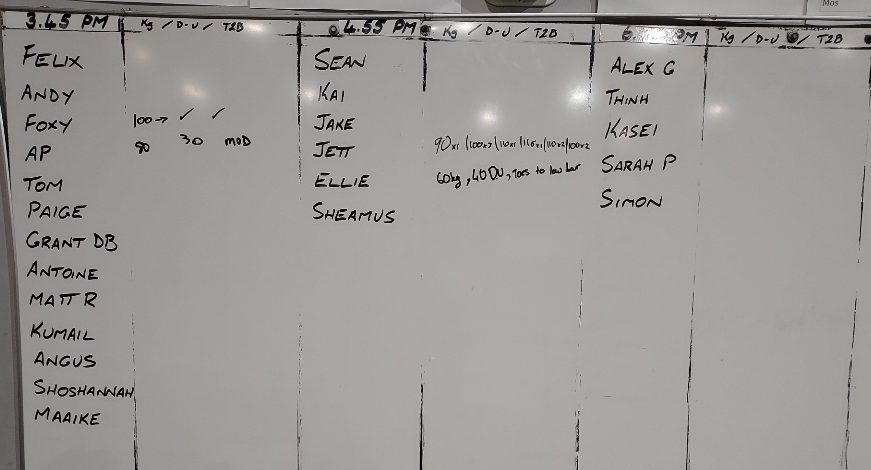 Mos
3.45 PM Kg / D-U / T2B
FELIX
ANDY
FOXY 100→ ✓ ✓
AP 80 30 MOD
TOM
PAIGE
GRANT DB
ANTOINE
MATT R
KUMAIL
ANGUS
SHOSHANNAH
MAAIKE
4.55 PM Kg / D-U / T2B
SEAN
KAI
JAKE
JETT 90x1 /100x3 /110x1 /115x1/110x2/100x2
ELLIE 60kg, 40 DU, Toes to low bar
SHEAMUS
6. PM Kg / D-U / T2B
ALEX G
THINH
KASEI
SARAH P
SIMON